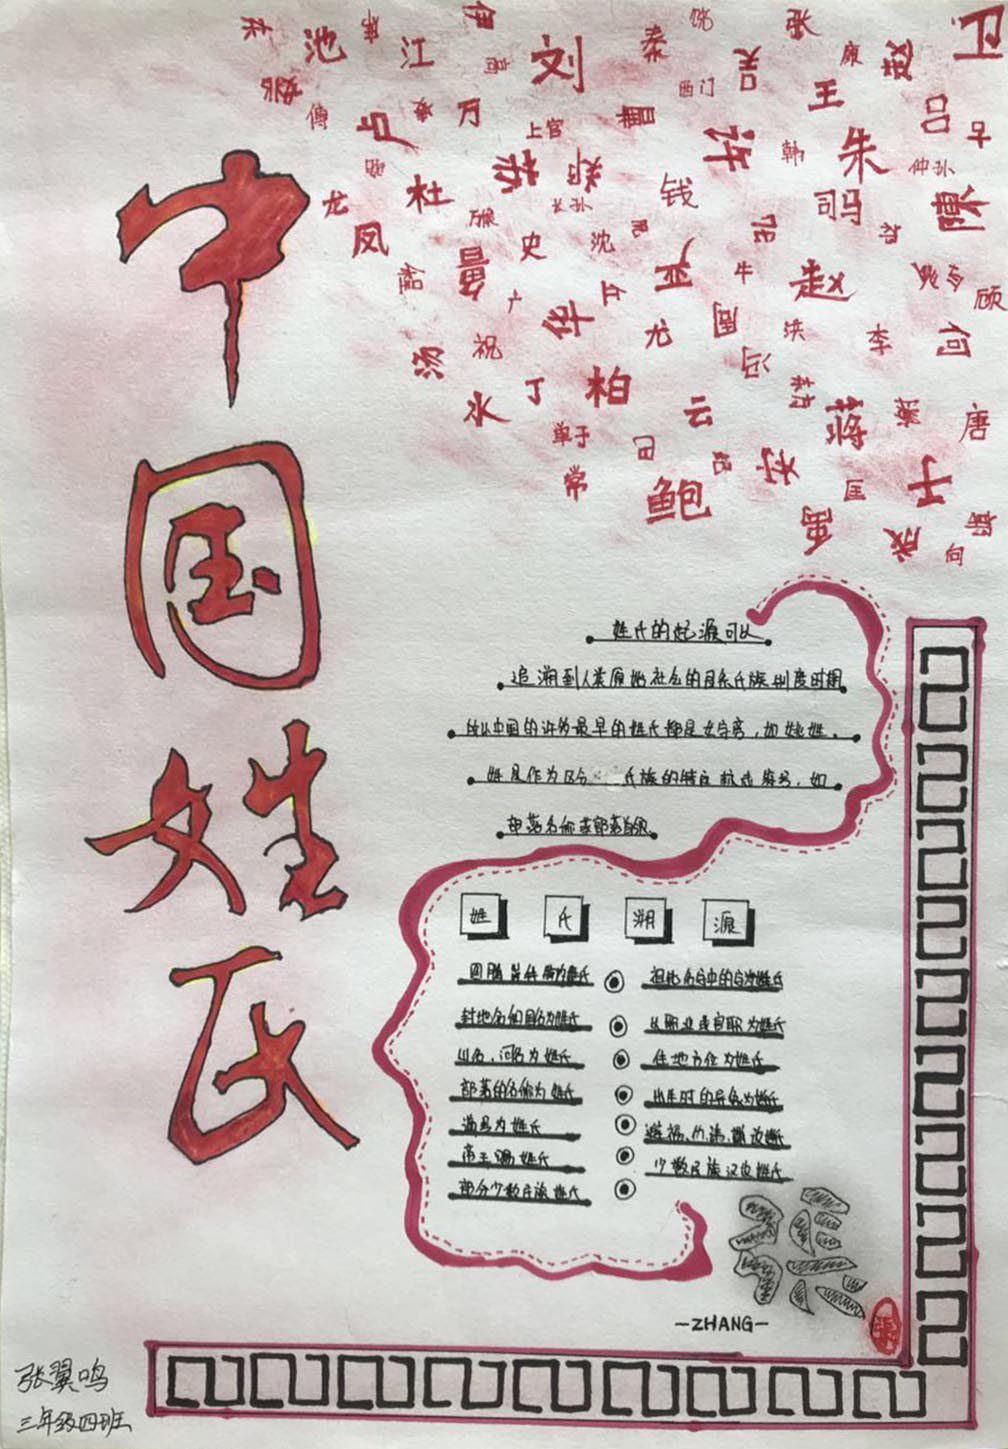 中国姓氏
池
江
伊
刘
秦
饶
张
吴
康
赵
卫
傅
卢
万
高
上官
曹
西门
王
吕
古
龙
杜
杨
郑
钱
许
韩
朱
仲孙
凤
史
长孙
沈
司马
陈
华
牛
赵
顾
汤
祝
尤
周
洪
李
何
水
丁
柏
云
冯
蒋
唐
单于
常
鲍
苏
匡
于
禹
成
向
姓氏的起源可以
追溯到人类原始社会的母系氏族制度时期
所以中国的许多最早的姓氏都是女字旁,如姚姓。
姓是作为区分 氏族的特定标志符号,如
部落名称或部落首领
姓氏溯源
图腾崇拜物为姓氏
祖先名字中的字为姓氏
封地名和国名为姓氏
从职业或官职为姓氏
山名、河名为姓氏
住地方位为姓氏
部落的名称为姓氏
出生时的异象为姓氏
谥号为姓氏
避祸、仇、讳改姓
帝王赐姓氏
少数民族汉化姓氏
部分少数民族姓氏
张
-ZHANG-
张翼鸣
三年级四班